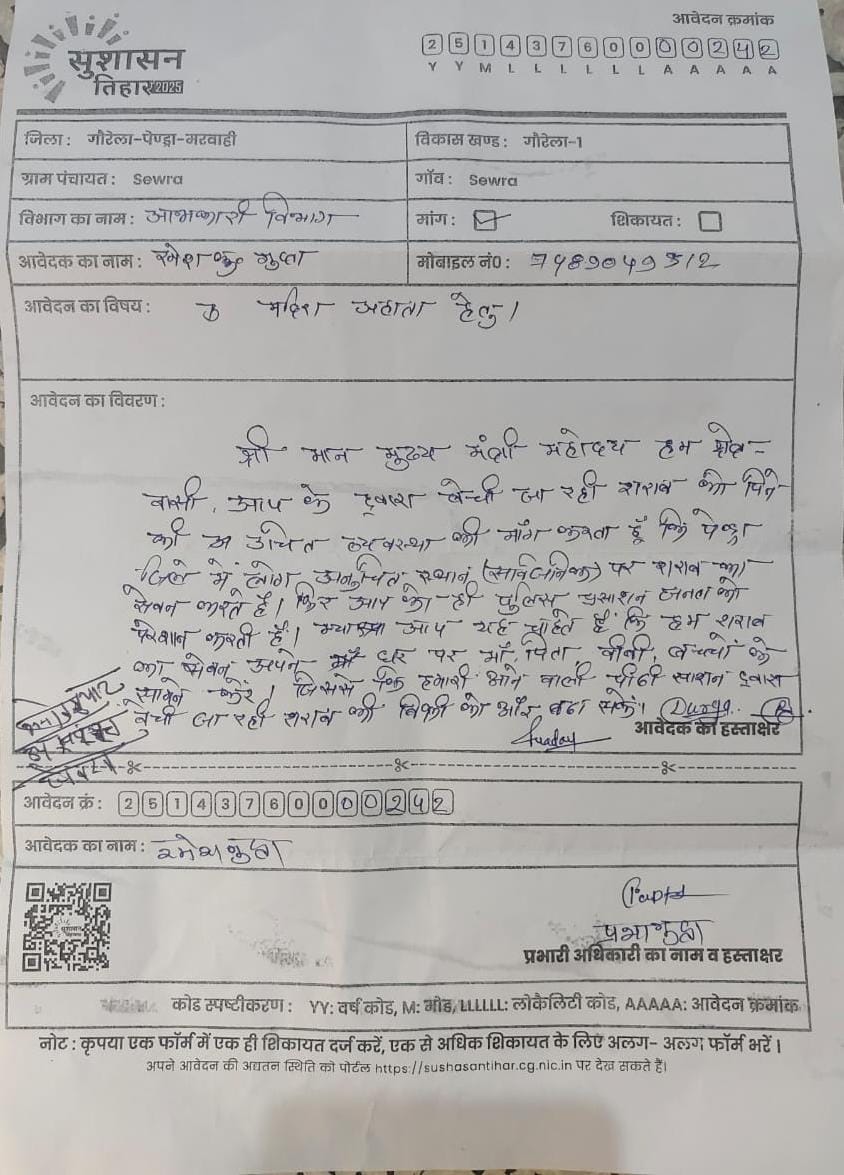 आवेदन क्रमांक
2 5 1 4 3 7 6 0 0 0 0 2 4 2
Y Y M L L L L L L A A A A A
सुशासन
तिहार 2025
जिला : गौरेला-पेण्ड्रा-मरवाही
विकास खण्ड : गौरेला-1
ग्राम पंचायत : Sewra
गॉव : Sewra
विभाग का नाम : आबकारी विभाग
मांग :
शिकायत :
आवेदक का नाम : रमेश कु गुप्ता
मोबाइल नं0 :
आवेदन का विषय : मदिरा अहाता हेतु।
आवेदन का विवरण :
श्री मान मुख्य मंत्री महोदय हम क्षेत्र-
वासी, आप के द्वारा बेची जा रही शराब को पिने
की उचित व्यवस्था की मॉग करता हूँ कि पेण्ड्रा
जिले में लोग अनुचित स्थानं (सार्वजनिक) पर शराब का
सेवन करते हैं। फिर आप का ही पुलिस प्रसाशन जनता को
परेशान करती हैं। क्या आप यह चाहते हैं कि हम शराब
का सेवन अपने घर पर माँ, पिता बीबी, बच्चों के
सामने करें। जिससे कि हमारी आने वाली पीढी साशन द्वारा
बेची जा रही शराब की बिक्री को और बढा सकें।
Durga
आवेदक का हस्ताक्षर
आवेदन क्रं : 2 5 1 4 3 7 6 0 0 0 0 2 4 2
आवेदक का नाम : रमेश गुप्ता
सुशासन
प्रभा गुप्ता
प्रभारी अधिकारी का नाम व हस्ताक्षर
कोड स्पष्टीकरण : YY: वर्ष कोड, M: मोड, LLLLLL: लोकैलिटी कोड, AAAAA: आवेदन क्रमांक
नोट : कृपया एक फॉर्म में एक ही शिकायत दर्ज करें, एक से अधिक शिकायत के लिए अलग- अलग फॉर्म भरें ।
अपने आवेदन की अद्यतन स्थिति को पोर्टल https://sushasantihar.cg.nic.in पर देख सकते हैं।